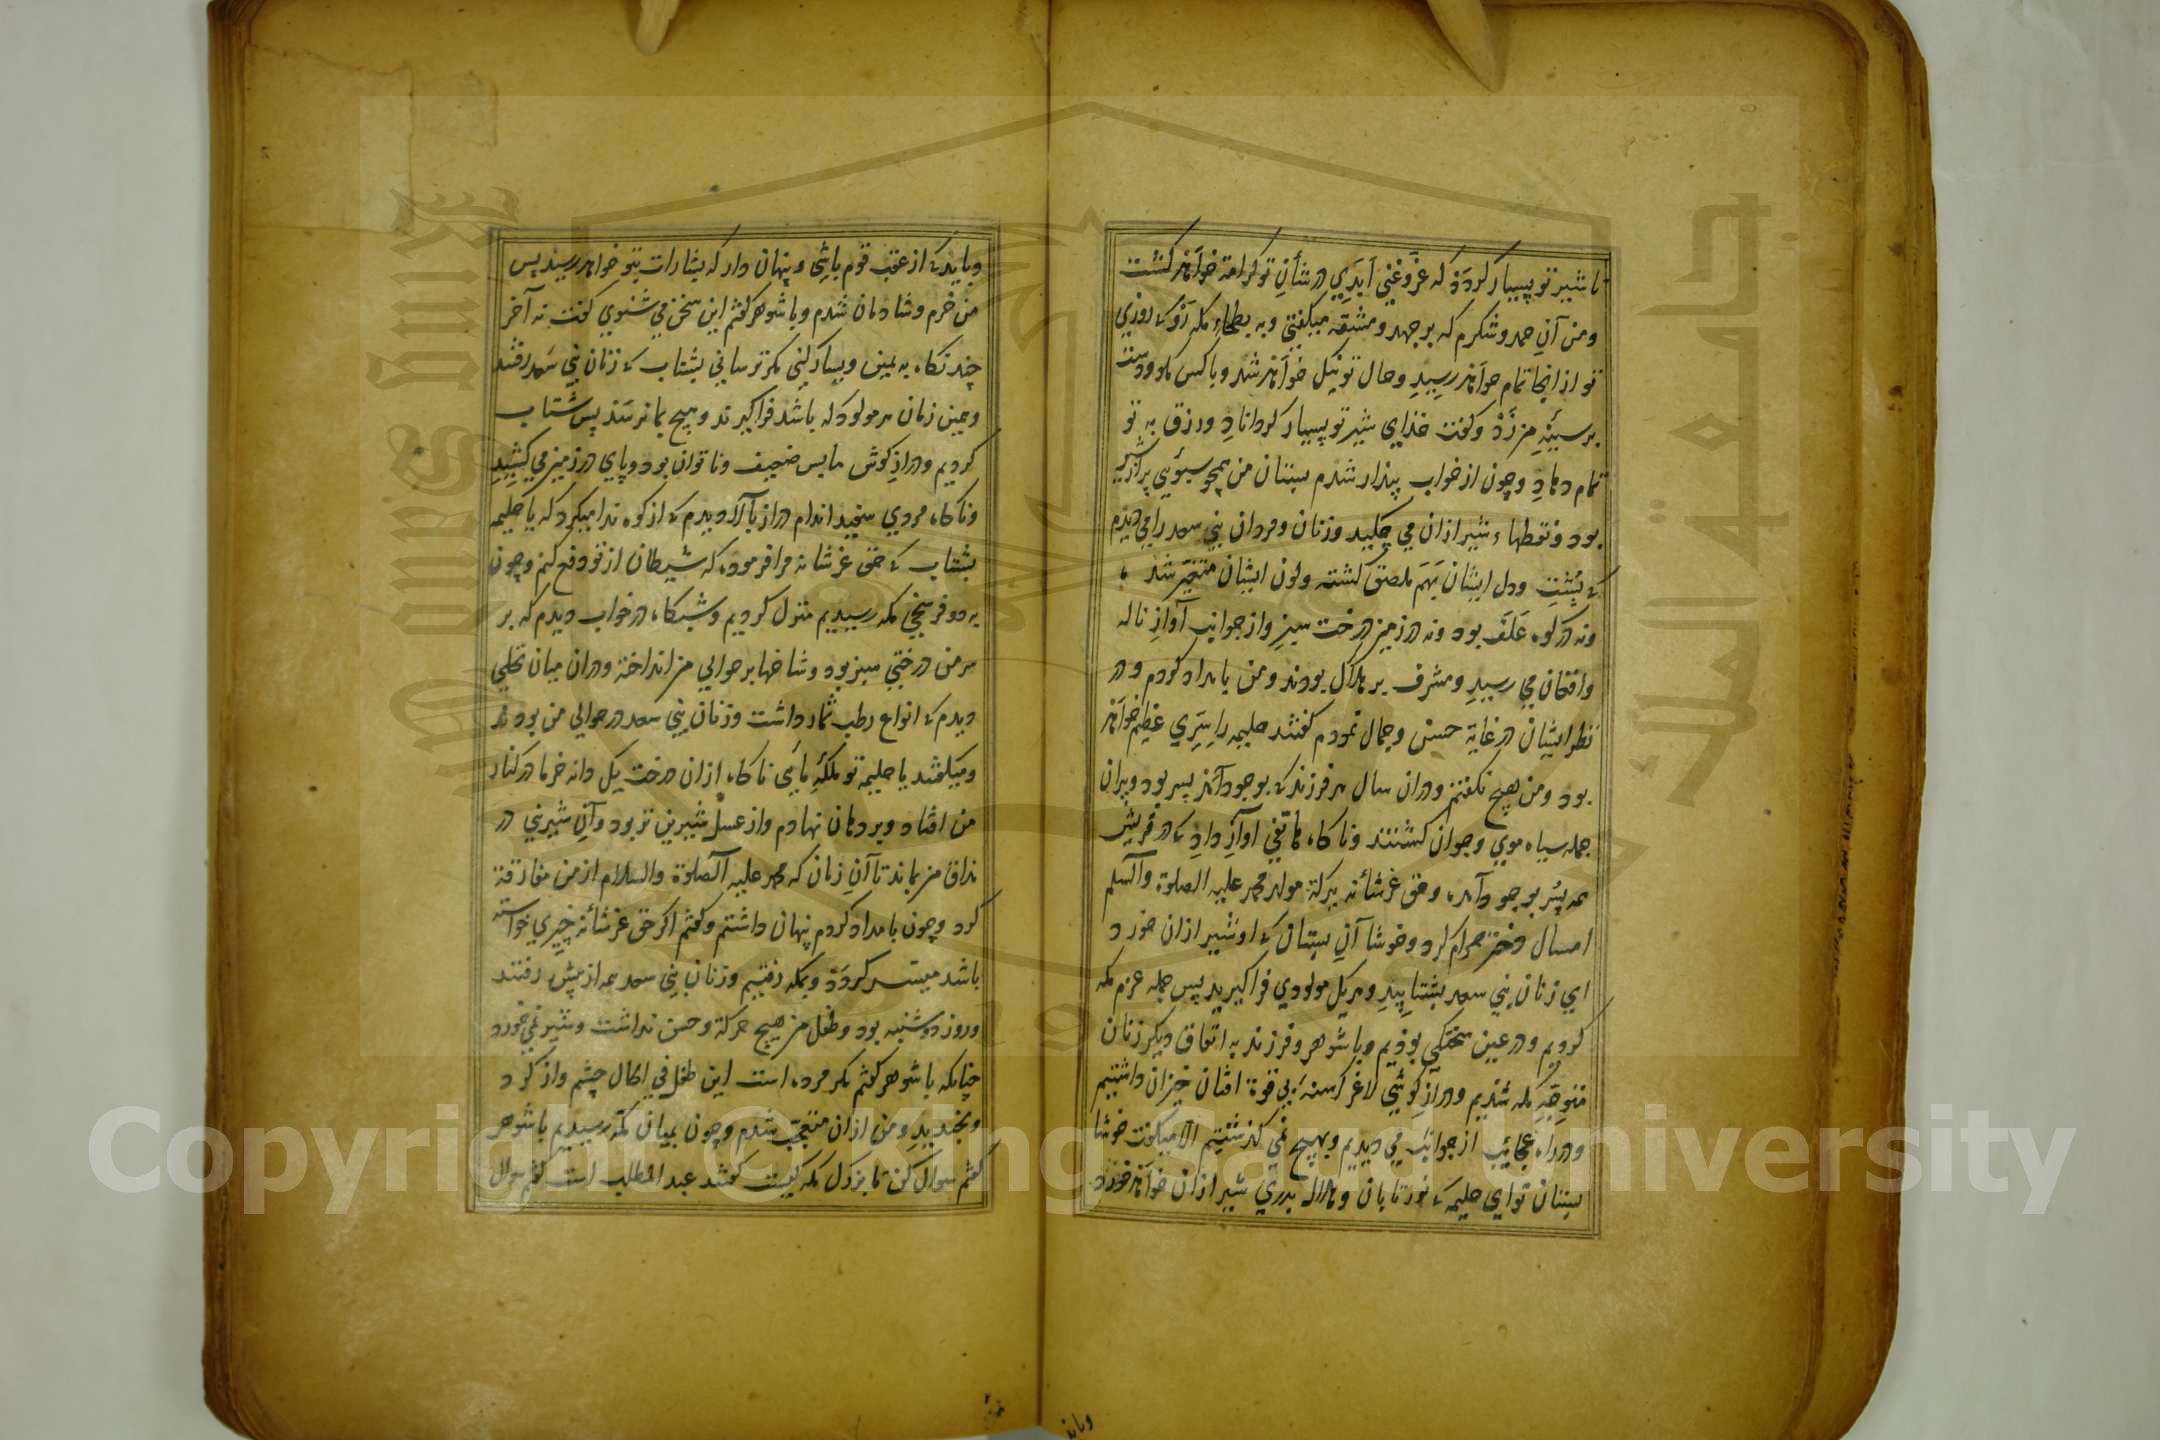 تا شیر تو بسیار گردد که عزّ و غنی ابدی در شأن تو کرامة خواهد گشت
و من آن حمد و شکرم که بر جهد و مشقه میگفتی و به بطحاء مکه رو که روزی
تو از انجا تمام خواهد رسید و حال تو نیکل خواهد شد و با کس مگو و دست
بر سینهٔ من زد و گفت خدای شیر تو بسیار گرداناد و رزق به تو
تمام دهاد و چون از خواب بیدار شدم پستان من همچو سبوئی پر از شیر
بود و نقطهاء شیر ازان می چکید و زنان و مردان بنی سعد را می دیدم
که پشت و دل ایشان بهم ملصق گشته و لون ایشان متغیّر شد
و نه در کوه علف بود و نه در زمین درخت سبز و از جوانب آواز ناله
و افغان می رسید و مشرف بر هلاک بودند و من بامداد کردم و در
نظر ایشان در غایة حسن و جمال نمودم گفتند حلیمه را سرّی عظیم خواهد
بود و من هیچ نگفتم و دران سال هر فرزند که بوجود آمد پسر بود و پیران
جمله سیاه موی و جوان گشتند و ناگاه هاتفی آواز داد که در قریش
همه پسر بوجود آمده و حق عز شأنه ببرکة مولد محمد علیه الصلوة والسلم
امسال دختر حرام کرد و خوشا آن پستان که او شیر ازان خورد
ای زنان بنی سعد بشتابید و هر یک مولودی فرا گیرید پس جمله عزم مکه
کردیم و در عین سختکی بودیم و با شوهر و فرزند به اتفاق دیگر زنان
متوجّه مکه شدیم و دراز گوشی لاغر گرسنه بی قوة افتان خیزان داشتیم
و در راه عجائب از جوانب می دیدم و بهیچ نمی گذشتیم الا میگفت خوشا
پستان تو ای حلیمه که نور تابان و هلال بدری شیر ازان خواهد خورد
وباید
و باید که از عقب قوم باشی و پنهان دار که بشارات بتو خواهد رسید پس
من خرم و شادمان شدم و با شوهر گفتم این سخن می شنوی گفت نه آخر
چند نگاه به یمین و یسار کنی مگر ترسانی بشتاب که زنان بنی سعد رفتند
و همین زمان هر مولود که باشد فرا گیرند و هیچ بما نرسد پس شتاب
کردیم و دراز گوش ما بس ضعیف و ناتوان بود و پای در زمین می کشید
و ناگاه مردی سفید اندام دراز بالا دیدم که از کوه ندا میکرد که یا حلیمه
بشتاب که حق عز شانه مرا فرموده که شیطان از تو دفع کنم و چون
به دو فرسخی مکه رسیدیم منزل کردیم و شبگاه در خواب دیدم که بر
سر من درختی سبز بود و شاخها بر حوالی من انداخته و دران میان نخلی
دیدم که انواع رطب ثمار داشت و زنان بنی سعد در حوالی من بودند
و میگفتند یا حلیمه تو ملکهٔ مایی ناگاه ازان درخت یک دانه خرما در کنار
من افتاد و بر دهان نهادم و از عسل شیرین تر بود و آن شیرینی در
مذاق من بماند تا آن زمان که محمد علیه الصلوة والسلام از من مفارقة
کرد و چون بامداد کردم پنهان داشتم و گفتم اگر حق عز شأنه چیزی خواسته
باشد میسّر گردد و بمکه رفتیم و زنان بنی سعد همه از پیش رفتند
و روز دوشنبه بود و طفل من هیچ حرکة و حس نداشت و شیر نمی خورد
چنانکه با شوهر گفتم مگر مرده است این طفل فی الحال چشم واز کرد
و بخندید و من ازان متعجّب شدم و چون بمیان مکه رسیدیم با شوهر
گفتم سوال کن تا بزرگ مکه کیست گفتند عبد المطلب است گفتم سوال
Copyright © King Saud University